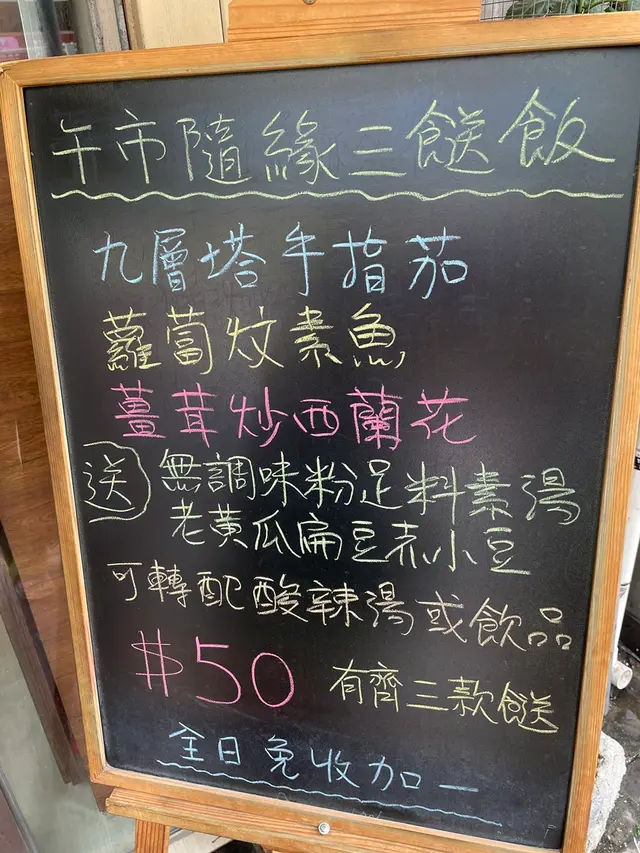 午市隨緣三餸飯
九層塔手指茄
蘿蔔炆素魚
薑茸炒西蘭花
送 無調味粉足料素湯
老黃瓜扁豆赤小豆
可轉配酸辣湯或飲品
$50 有齊三款餸
全日免收加一